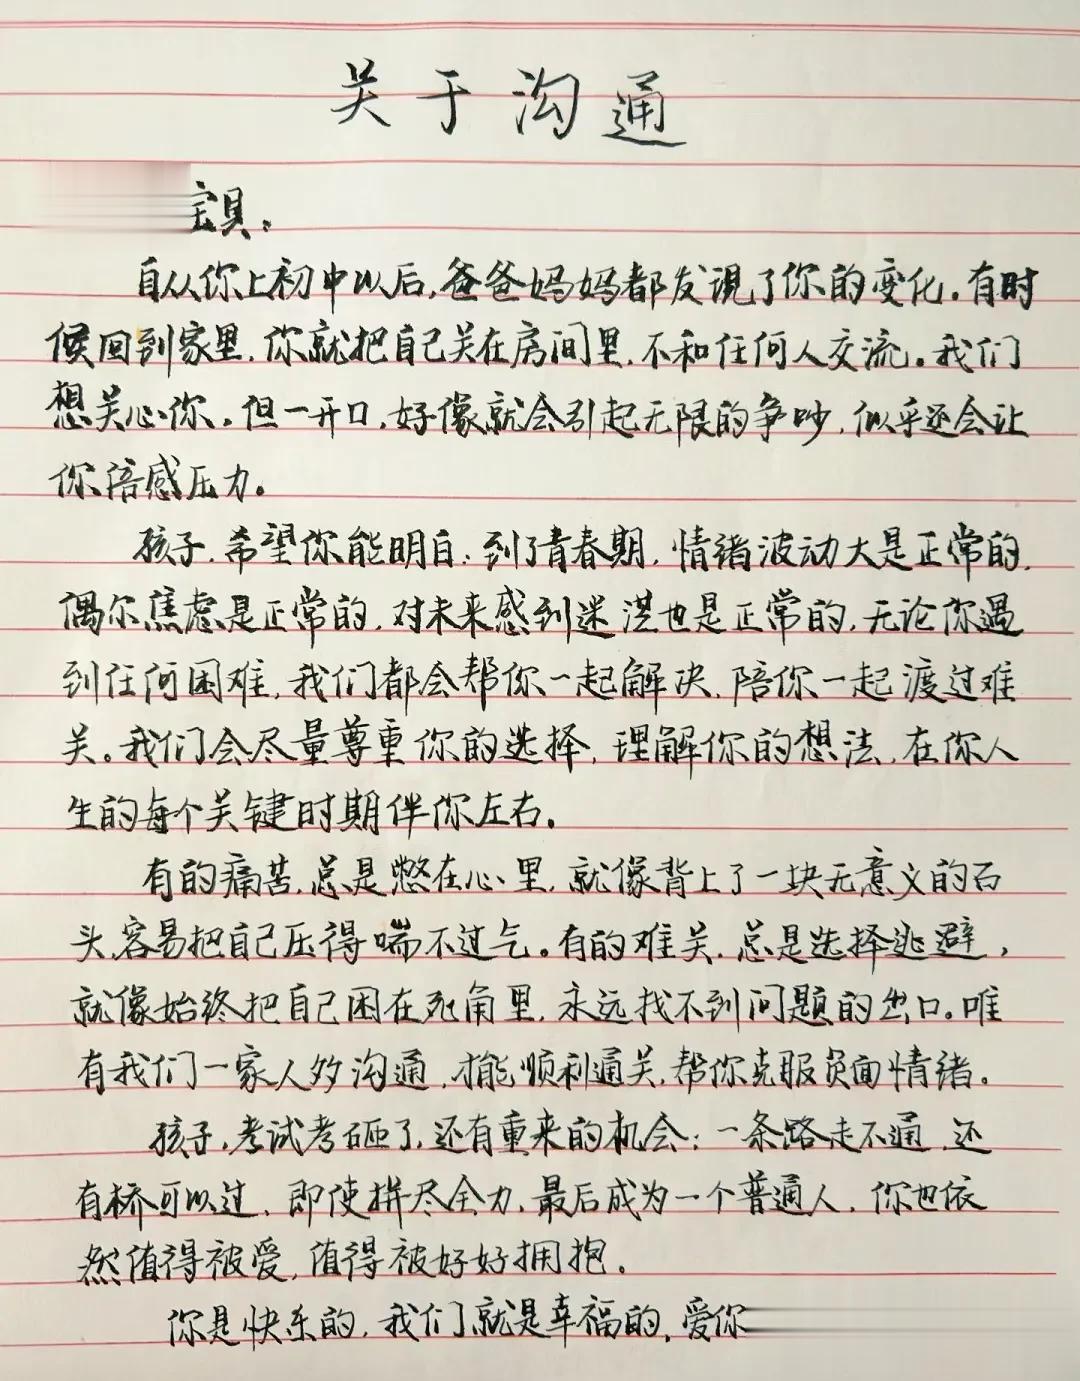 关于沟通
宝贝：
自从你上初中以后，爸爸妈妈都发现了你的变化。有时
候回到家里，你就把自己关在房间里，不和任何人交流。我们
想关心你，但一开口，好像就会引起无限的争吵，似乎还会让
你倍感压力。
孩子，希望你能明白：到了青春期，情绪波动大是正常的，
偶尔焦虑是正常的，对未来感到迷茫也是正常的，无论你遇
到任何困难，我们都会帮你一起解决，陪你一起渡过难
关。我们会尽量尊重你的选择，理解你的想法，在你人
生的每个关键时期伴你左右。
有的痛苦，总是憋在心里，就像背上了一块无意义的石
头，容易把自己压得喘不过气。有的难关，总是选择逃避，
就像始终把自己困在死角里，永远找不到问题的出口。唯
有我们一家人多沟通，才能顺利通关，帮你克服负面情绪。
孩子，考试考砸了，还有重来的机会；一条路走不通，还
有桥可以过，即使拼尽全力，最后成为一个普通人，你也依
然值得被爱，值得被好好拥抱。
你是快乐的，我们就是幸福的，爱你